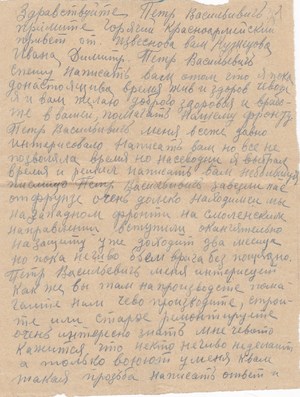 Здравствуйте Петр Васильевичь
примите горячий Красноармейский
привет от известнова вам Кузнецова
Ивана Дмитр. Петр Васильевичь
спешу написать вам о том что я пока
донастоящива время жив и здоров чево
и я вам желаю доброго здоровья и
в вашей помогать нашему фронту
Петр Васильевичь меня всеже давно
интерисовало написать вам но все не
позволяла время но насегодни я выбрал
время и решил написать вам
Петр Васильевичь
от фрунзе очень долго находимси мы
на западном фронте на Смоленским
направлении вступили окончательно
на защиту уже доходит два месеца
но пока нечиво обем врага бес пощадно.
Петр Васильевичь меня интерисует
как же вы там на производстве пома-
гаите нам чево производите, строи-
те или старое ремонтируете
очень интересно знать мне чевото
кажится что некто нечево неделаит
а только воюют у меня к вам
такая прозьба написать ответ и